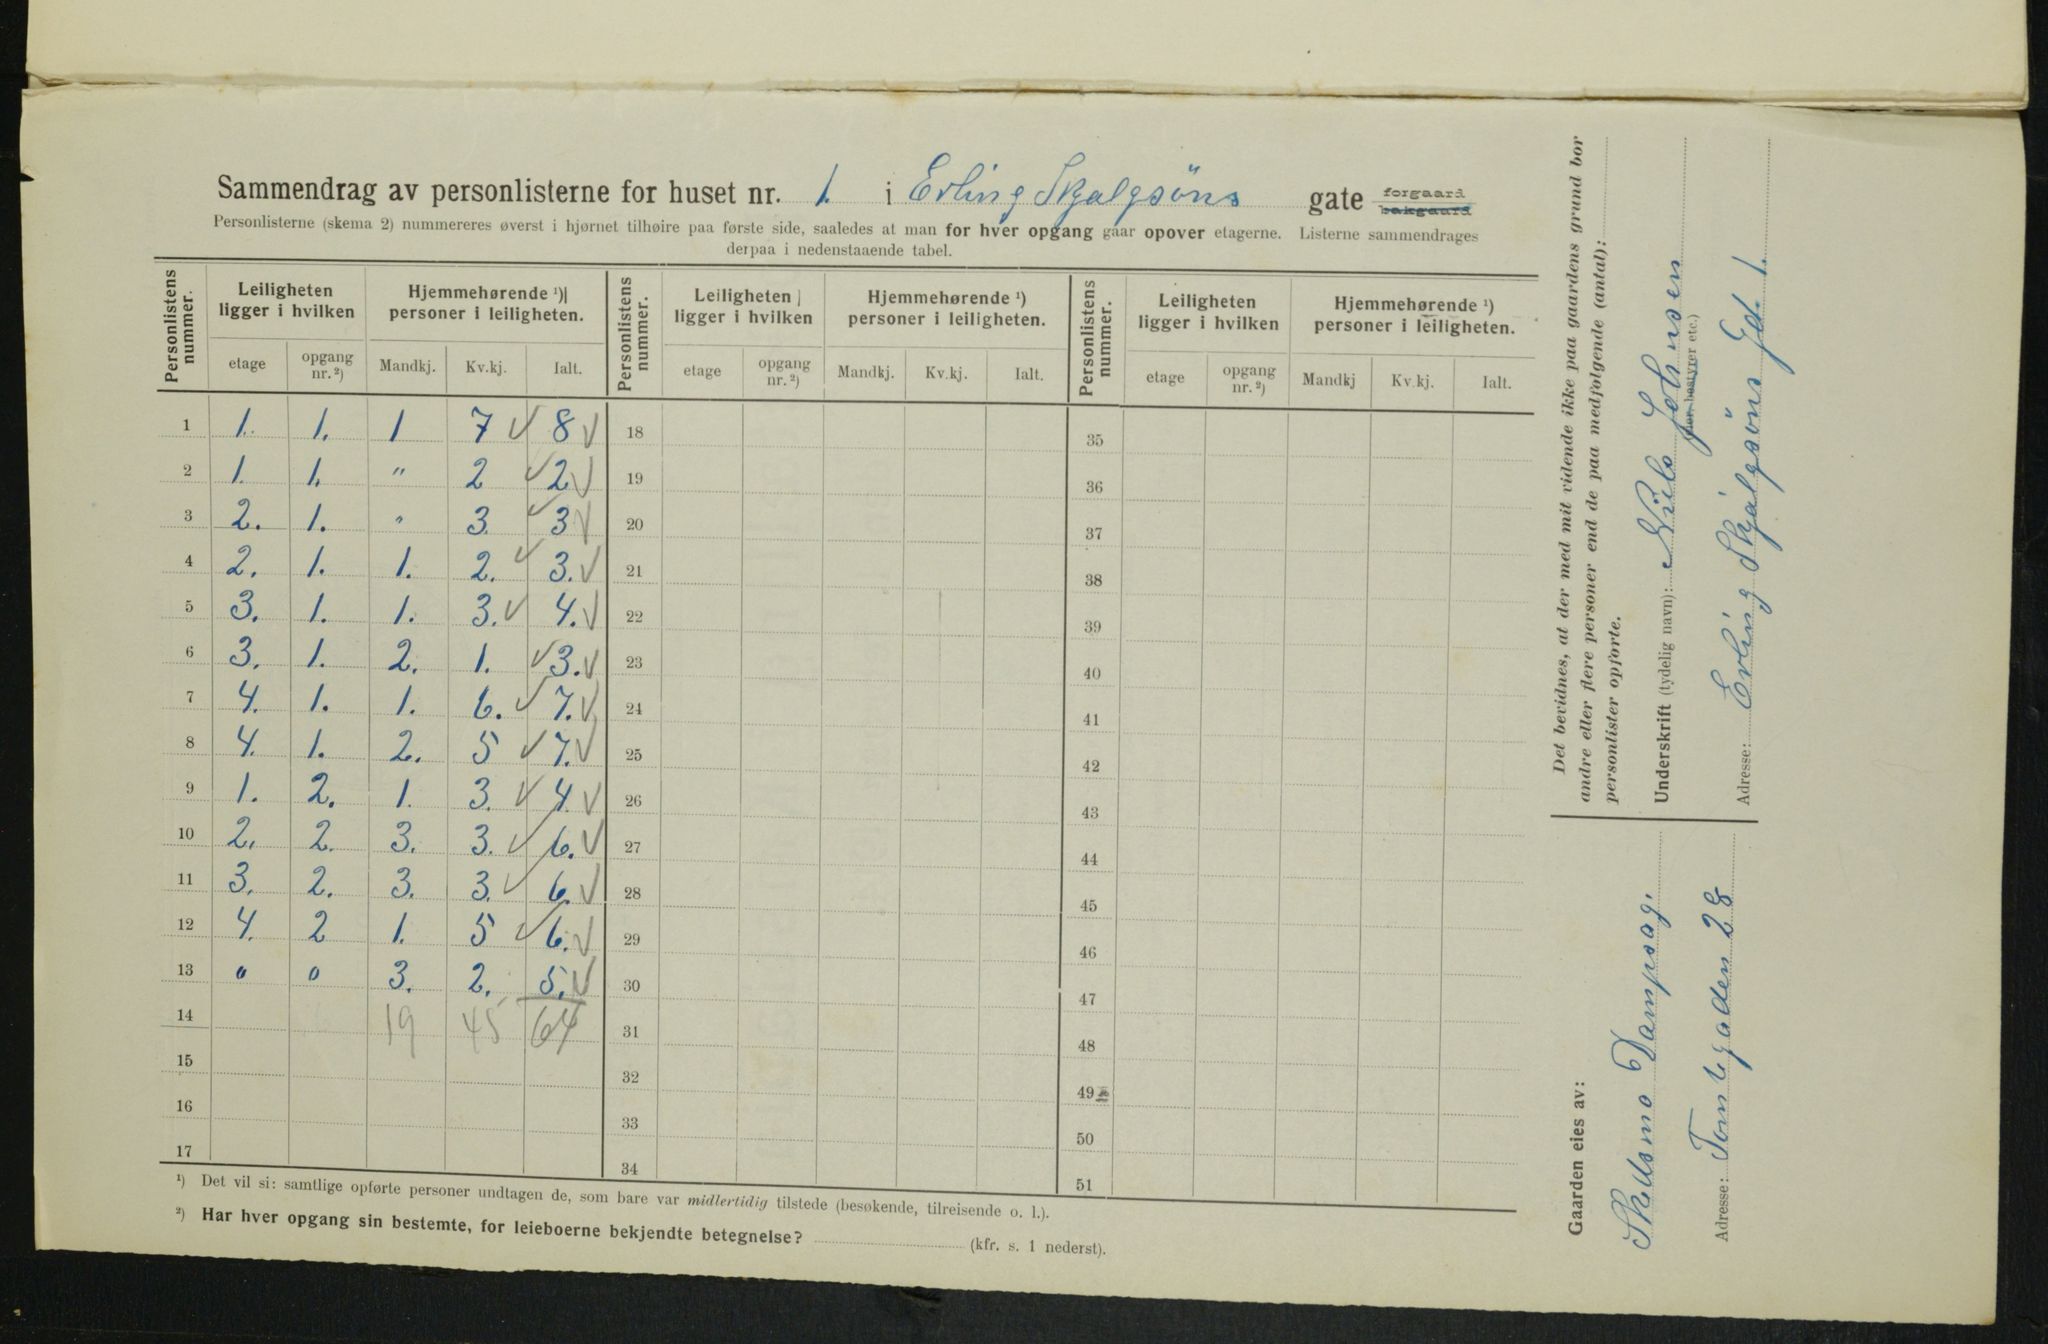 Sammendrag av personlisterne for huset nr. 1. i Erling Skjalgsöns gate forgaard bakgaard
Personlisterne (skema 2) nummereres øverst i hjørnet tilhøire paa første side, saaledes at man for hver opgang gaar opover etagerne. Listerne sammendrages
derpaa i nedenstaaende tabel.
Personlistens nummer. Leiligheten ligger i hvilken Hjemmehørende ¹) personer i leiligheten. Personlistens nummer. Leiligheten ligger i hvilken Hjemmehørende ¹) personer i leiligheten. Personlistens nummer. Leiligheten ligger i hvilken Hjemmehørende ¹) personer i leiligheten.
etage opgang nr. ²) Mandkj. Kv.kj. Ialt. etage opgang nr. ²) Mandkj. Kv.kj. Ialt. etage opgang nr. ²) Mandkj Kv.kj. Ialt.
1 1. 1. 1 7 8 18 35
2 1. 1. " 2 2 19 36
3 2. 1. " 3. 3 20 37
4 2. 1. 1. 2. 3. 21 38
5 3. 1. 1. 3. 4. 22 39
6 3. 1. 2. 1. 3. 23 40
7 4. 1. 1. 6. 7. 24 41
8 4. 1. 2. 5 7. 25 42
9 1. 2. 1. 3. 4. 26 43
10 2. 2. 3. 3. 6. 27 44
11 3. 2. 3. 3. 6. 28 45
12 4. 2 1. 5 6. 29 46
13 0 0 3. 2. 5. 30 47
14 19 45 64 31 48
15 32 49
16 33 50
17 34 51
¹) Det vil si: samtlige opførte personer undtagen de, som bare var midlertidig tilstede (besøkende, tilreisende o. l.).
²) Har hver opgang sin bestemte, for leieboerne bekjendte betegnelse? (kfr. s. 1 nederst).
Det bevidnes, at der med mit vidende ikke paa gaardens grund bor
andre eller flere personer end de paa medfølgende (antal):
personlister opførte.
Underskrift (tydelig navn): Nils Johnsen
bestyrer etc.)
Adresse: Erling Skjalgsöns Gt. 1.
Gaarden eies av:
Dampsag.
Adresse: Tomtegaden 28